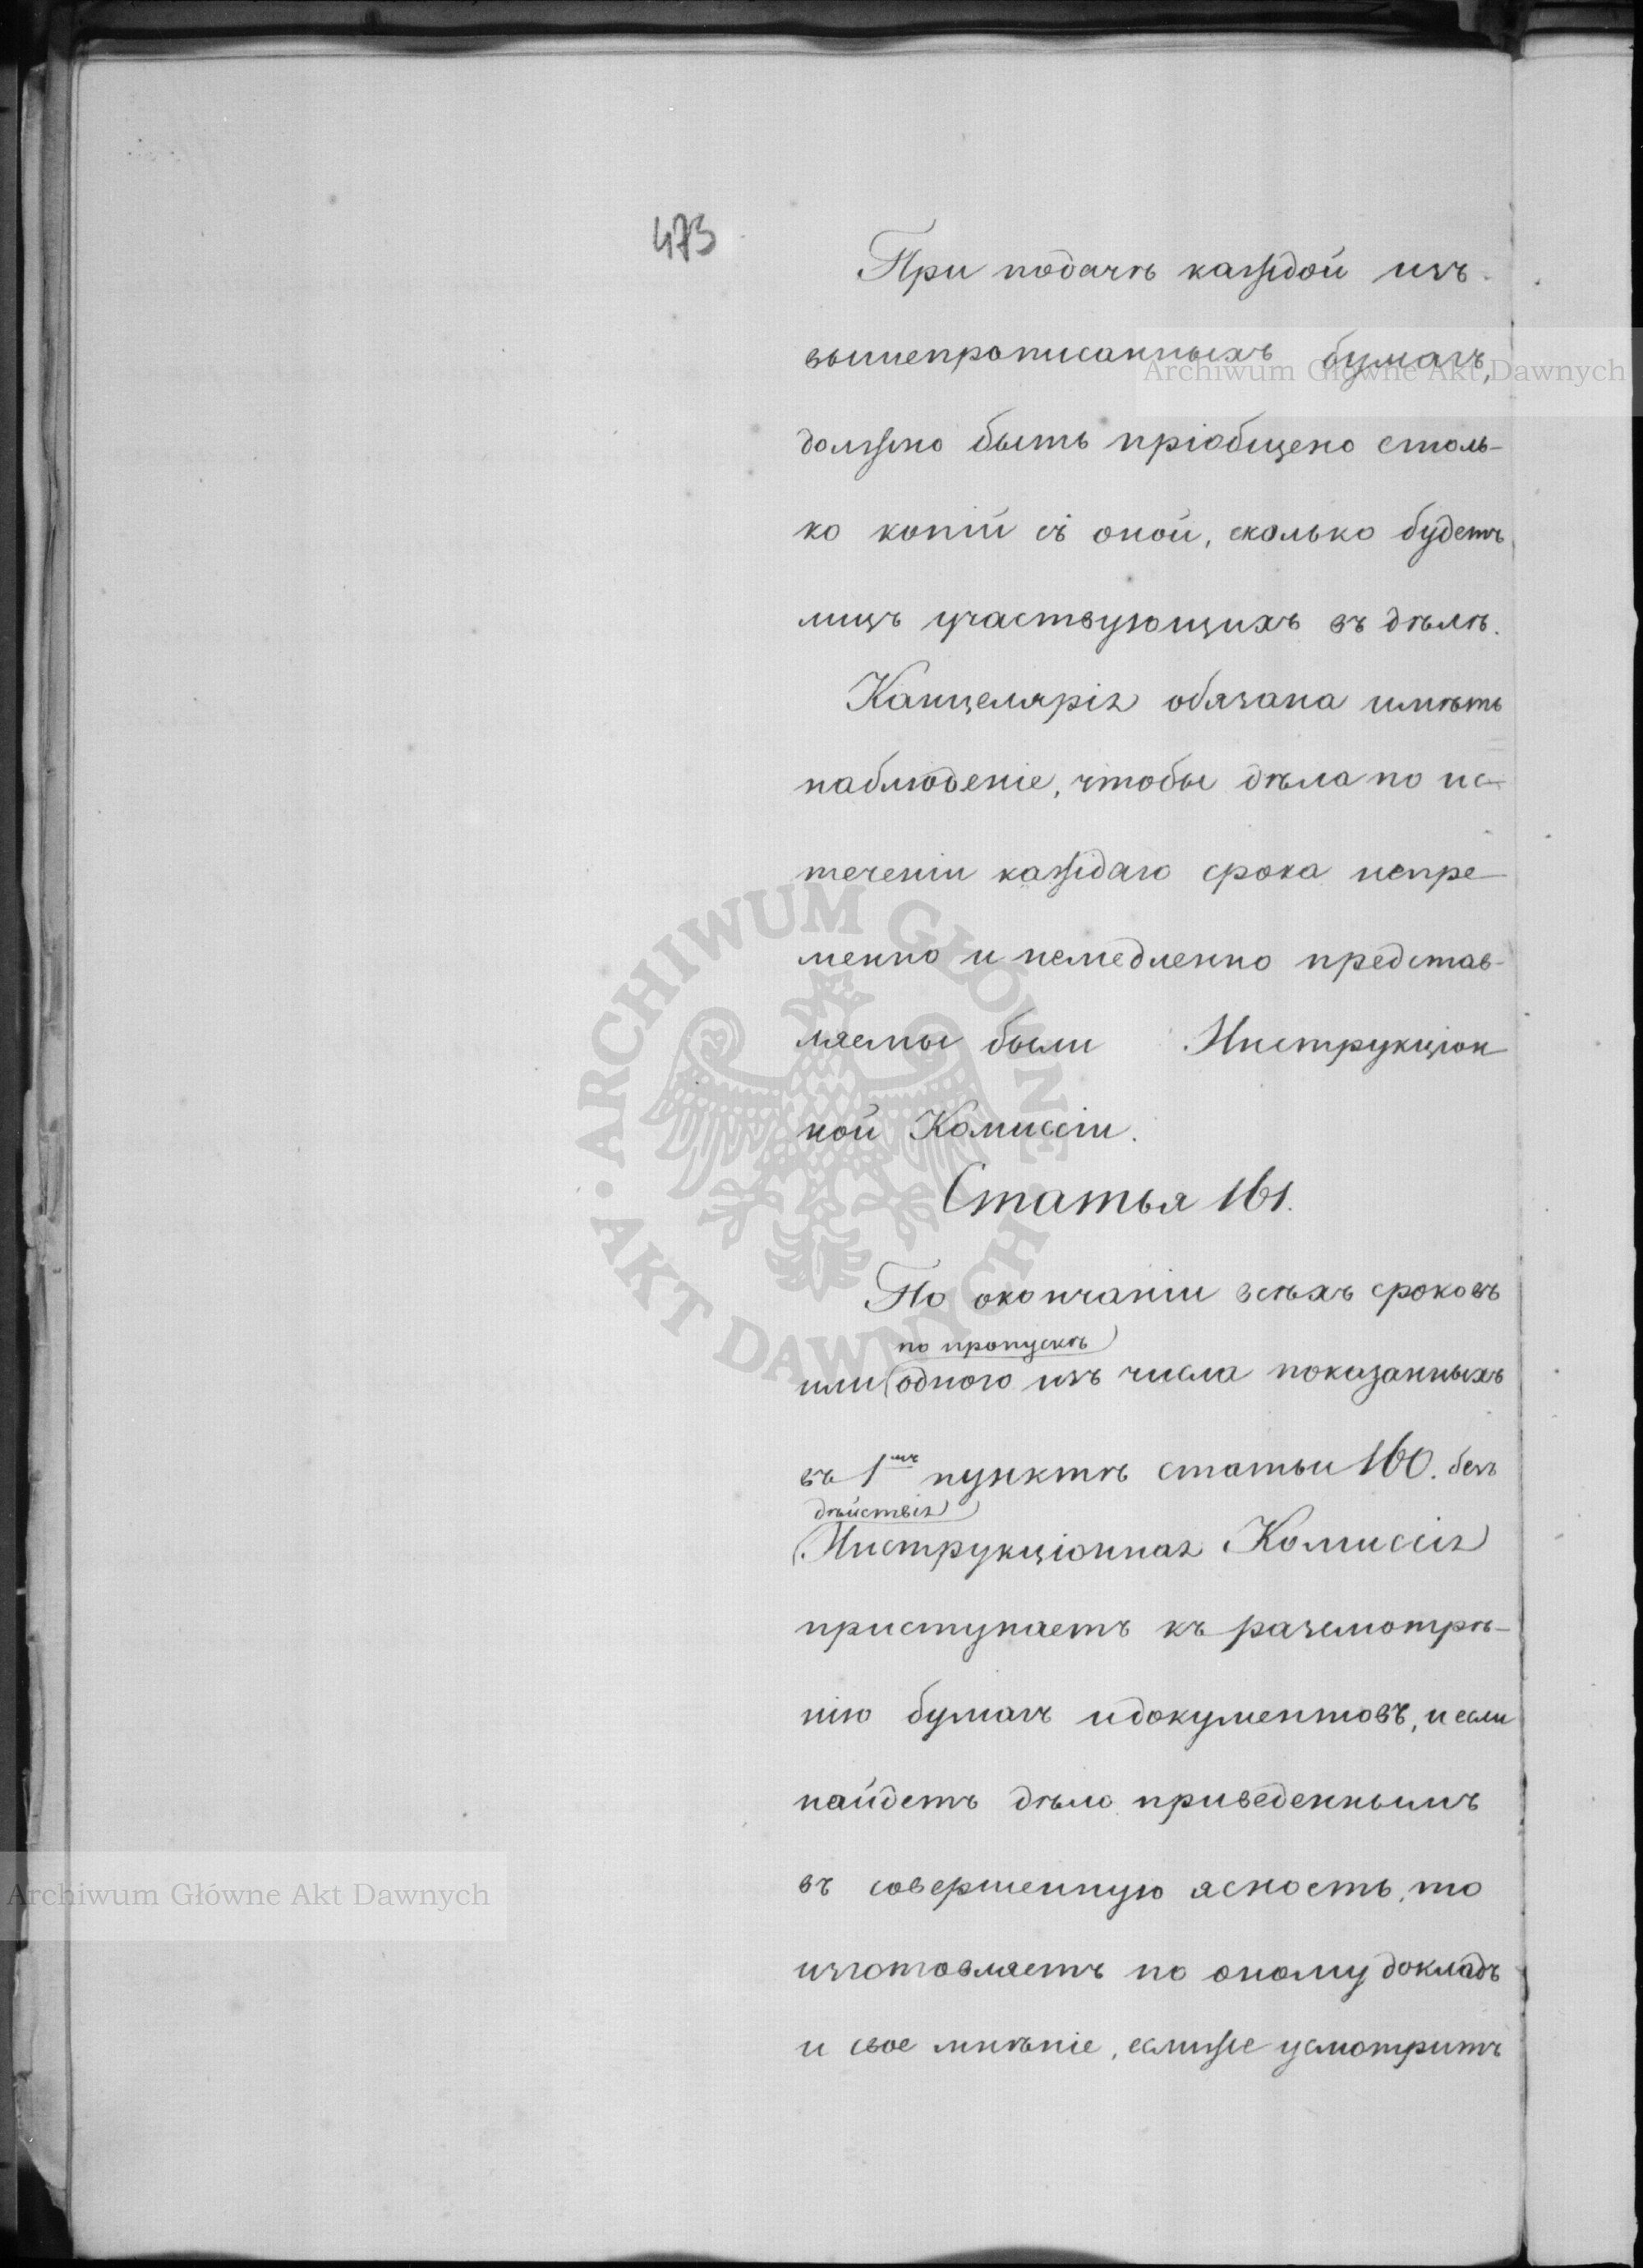 473
При подачѣ каждой изъ
вышепрописанныхъ бумагъ,
должно быть пріобщено столь-
ко копій съ оной, сколько будетъ
лицъ участвующихъ въ дѣлѣ.
Канцелярія обязана имѣть
наблюденіе, чтобы дѣла по ис-
теченіи каждаго срока непре-
менно и немедленно представ-
ляемы были Инструкціон
ной Комиссіи.
Статья 161.
По окончаніи всѣхъ сроковъ
по пропускѣ
или одного изъ числа показанныхъ
въ 1мъ пунктѣ статьи 160. безъ
дѣйствія
Инструкціонная Комиссія
приступаетъ къ разсмотрѣ-
нію бумагъ и документовъ, и если
найдетъ дѣло приведеннымъ
въ совершенную ясность, то
изготовляетъ по оному докладъ
и свое мнѣніе, еслиже усмотритъ
Archiwum Główne Akt Dawnych
ARCHIWUM GŁÓWNE AKT DAWNYCH
Archiwum Główne Akt Dawnych